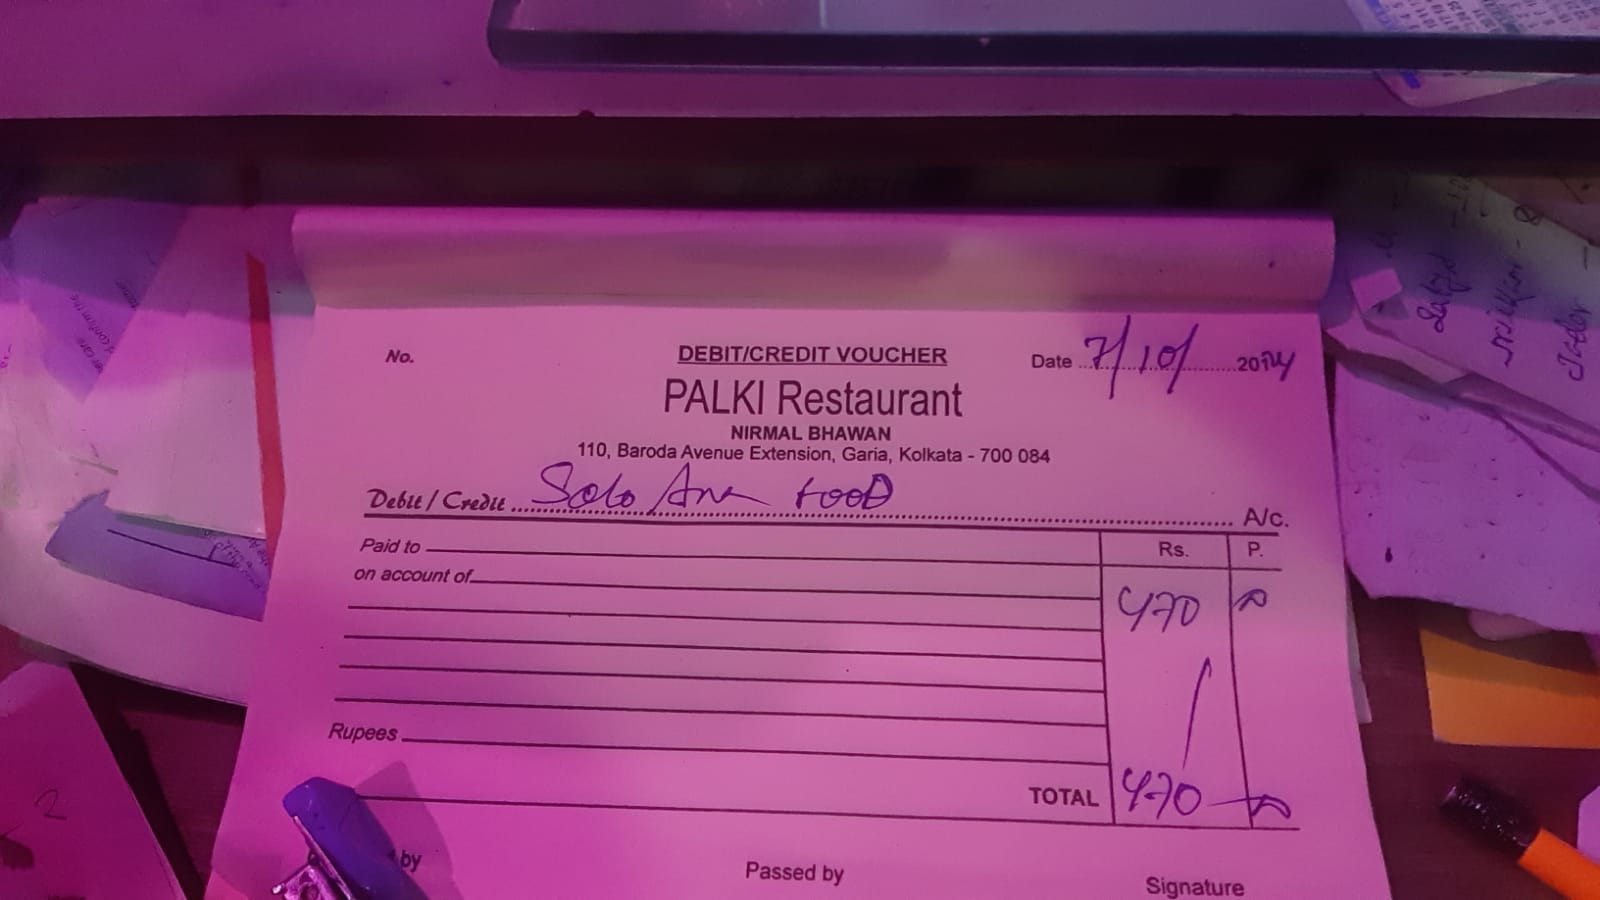 No.
DEBIT/CREDIT VOUCHER
Date 7/10/ 2024
PALKI Restaurant
NIRMAL BHAWAN
110, Baroda Avenue Extension, Garia, Kolkata - 700 084
Debit / Credit Food A/c.
Paid to
Rs. P.
on account of
470
Rupees
TOTAL 470
by
Passed by
Signature
2